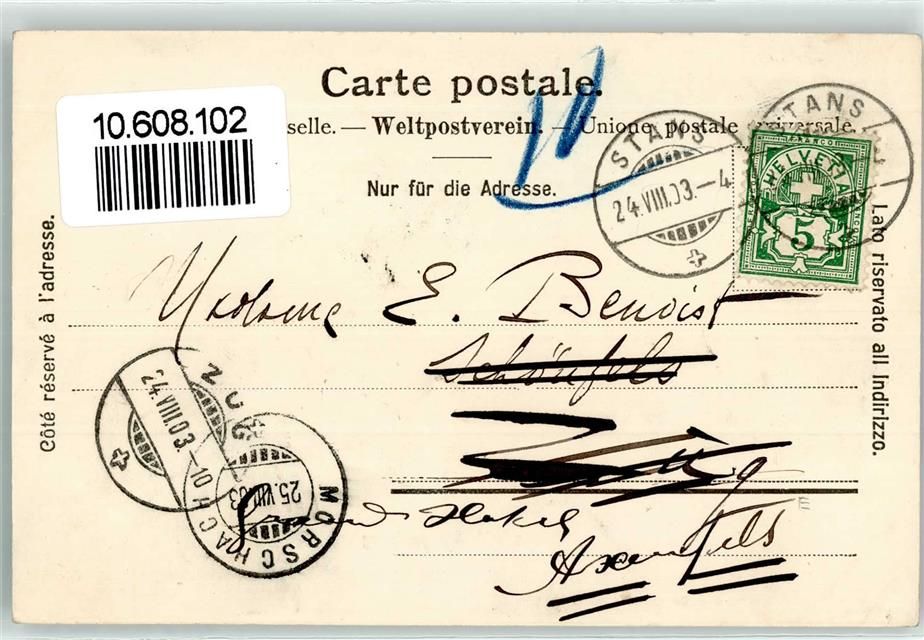 Carte postale.
10.608.102
selle. — Weltpostverein. — Unione postale universale.
Nur für die Adresse.
STANS
24.VIII.03.–4
STANS
FRANCO
HELVETIA
5
Côté réservé à l'adresse.
Lato riservato all Indirizzo.
Madame E. Benoist
Schönfels
Zug
24.VIII.03.–10
MORSCHACH
25.VIII.03
Grand Hotel
Axenfels
E